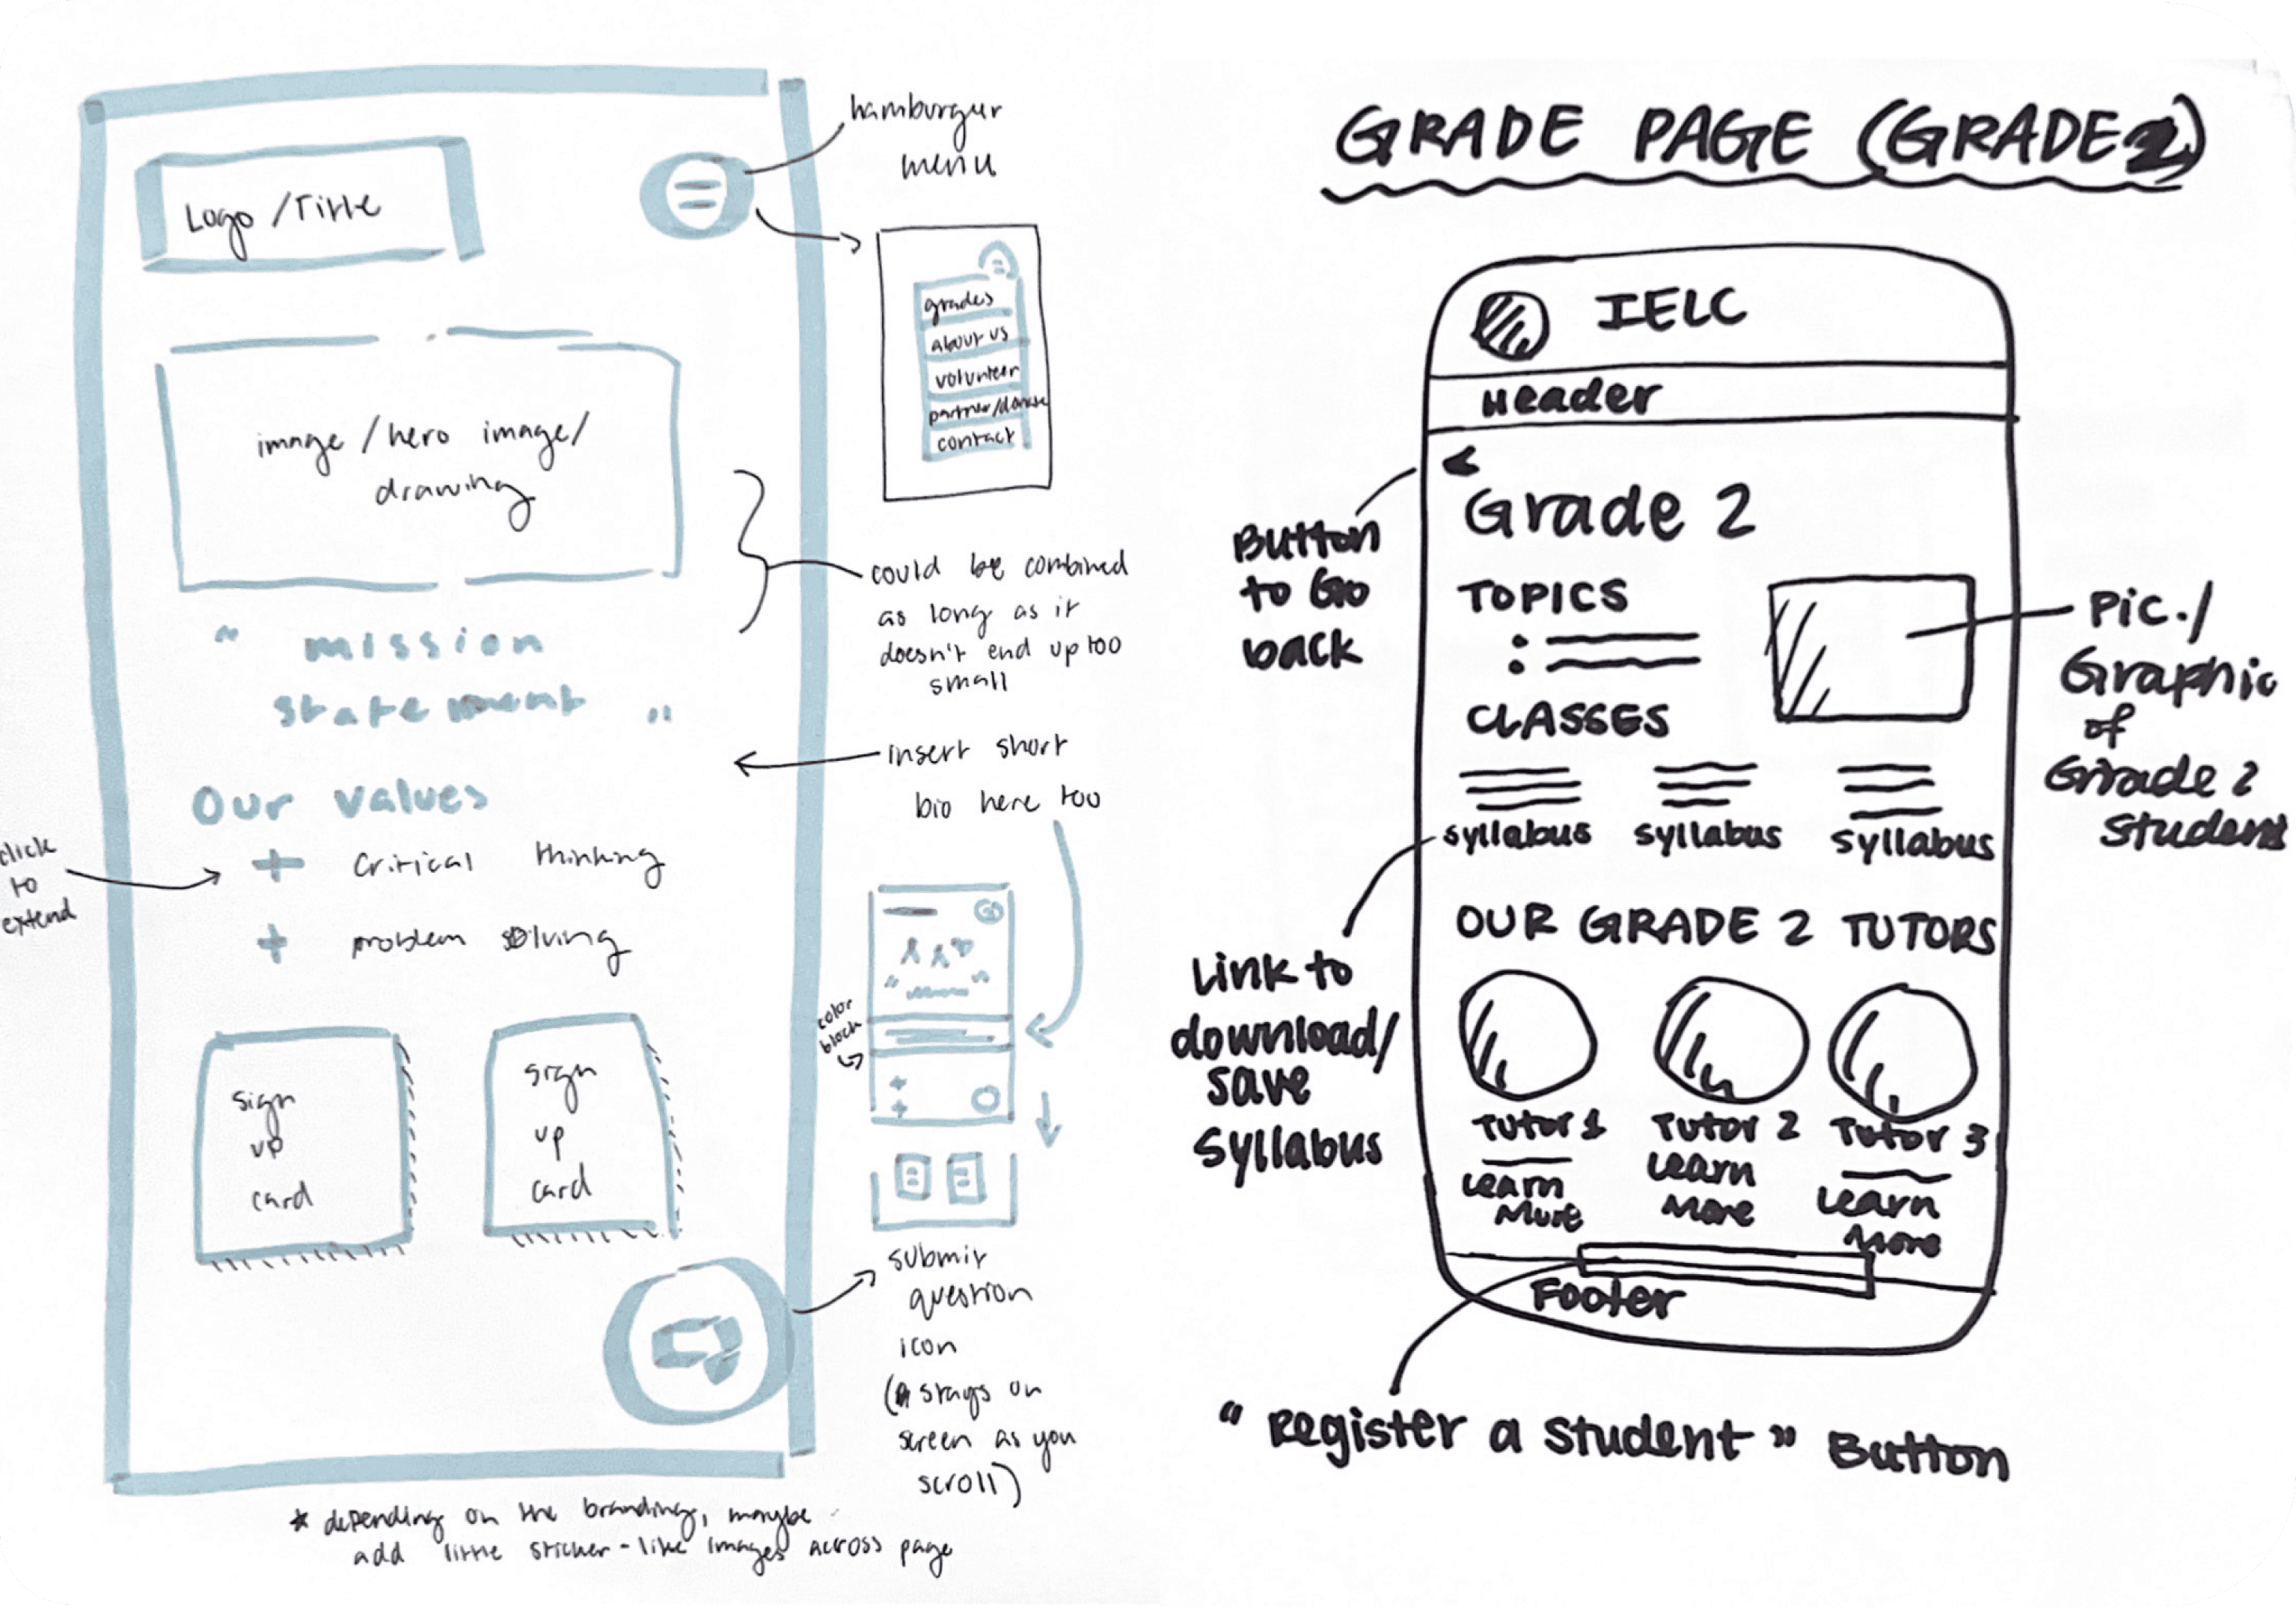 Logo / Title
hamburger
menu
grades
about us
volunteer
partner/donate
contact
image / hero image /
drawing
could be combined
as long as it
doesn't end up too
small
" mission
statement "
insert short
bio here too
Our values
click
to
extend
+ critical thinking
+ problem solving
color
block
sign
up
card
sign
up
card
submit
question
icon
( stays on
screen as you
scroll)
* depending on the branding, maybe
add little sticker-like images across page
GRADE PAGE (GRADE 2)
IELC
Header
<
Button
to Go
back
Grade 2
TOPICS
CLASSES
Pic./
Graphic
of
Grade 2
Student
syllabus syllabus syllabus
Link to
download/
save
syllabus
OUR GRADE 2 TUTORS
Tutor 1 Tutor 2 Tutor 3
Learn More
Learn More
Learn More
Footer
"Register a Student" Button